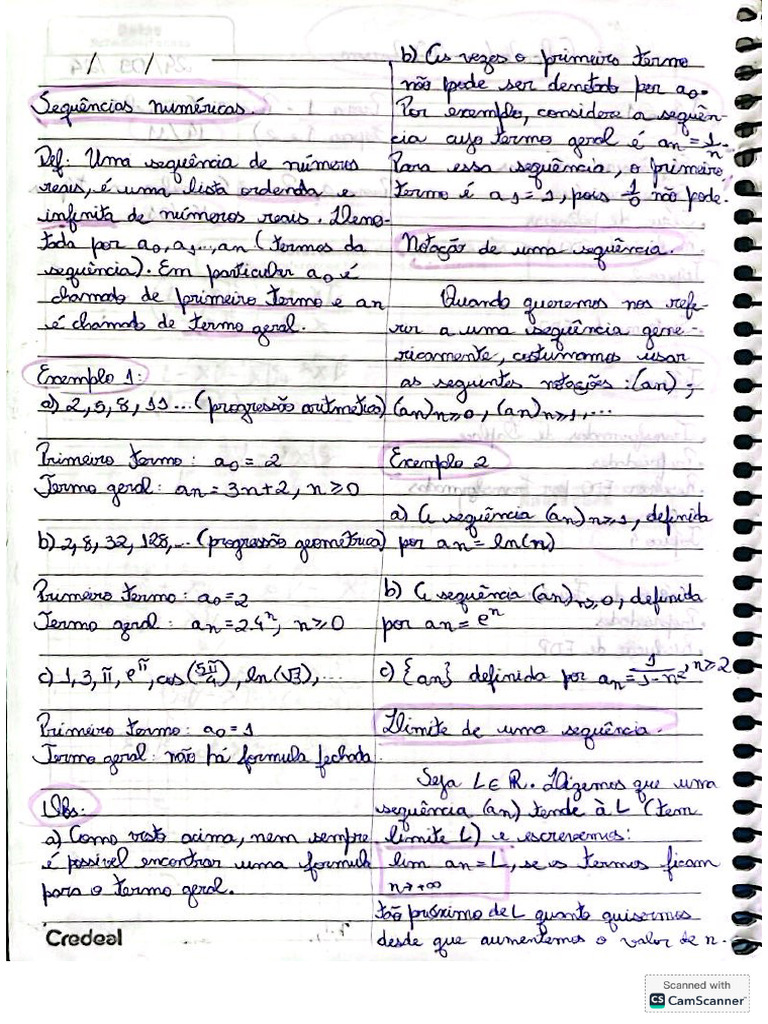 / /
Sequências numéricas.
Def: Uma sequência de números
reais, é uma lista ordenda e
infinita de números reais. Deno-
tada por a₀, a₁..., an (termos da
sequência). Em particular a₀ é
chamado de primeiro termo e an
é chamado de termo geral.
Exemplo 1:
a) 2, 5, 8, 11 ... (progressão aritmética)
Primeiro termo: a₀ = 2
Termo geral: an = 3n+2, n ≥ 0
b) 2, 8, 32, 128,... (progressão geométrica)
Primeiro termo: a₀ = 2
Termo geral: an = 2.4ⁿ, n ≥ 0
c) 1, 3, π, e^π, cos(5π/4), ln(√3), ...
Primeiro termo: a₀ = 1
Termo geral: não há formula fechada.
Obs:
a) Como visto acima, nem sempre
é possível encontrar uma formula
para o termo geral.
b) As vezes o primeiro termo
não pode ser denotado por a₀.
Por exemplo, considere a sequên-
cia cujo termo geral é an = 1/n.
Para essa sequência, o primeiro
termo é a₁ = 1, pois 1/0 não pode.
Notação de uma sequência.
Quando queremos nos refe-
rir a uma sequência gene-
ricamente, costumamos usar
as seguintes notações: (an);
(an)n≥0, (an)n≥1, ...
Exemplo 2
a) A sequência (an)n≥1, definida
por an = ln(n)
b) A sequência (an)n≥0, definida
por an = eⁿ
c) {an} definida por an = 1/(1-n²), n≥2
Limite de uma sequência.
Seja L ∈ R. Dizemos que uma
sequência (an) tende à L (tem
limite L) e escrevemos:
lim an = L, se os termos ficam
n→+∞
tão próximo de L quanto quisermos
desde que aumentemos o valor de n.
Credeal
Scanned with
CS CamScanner